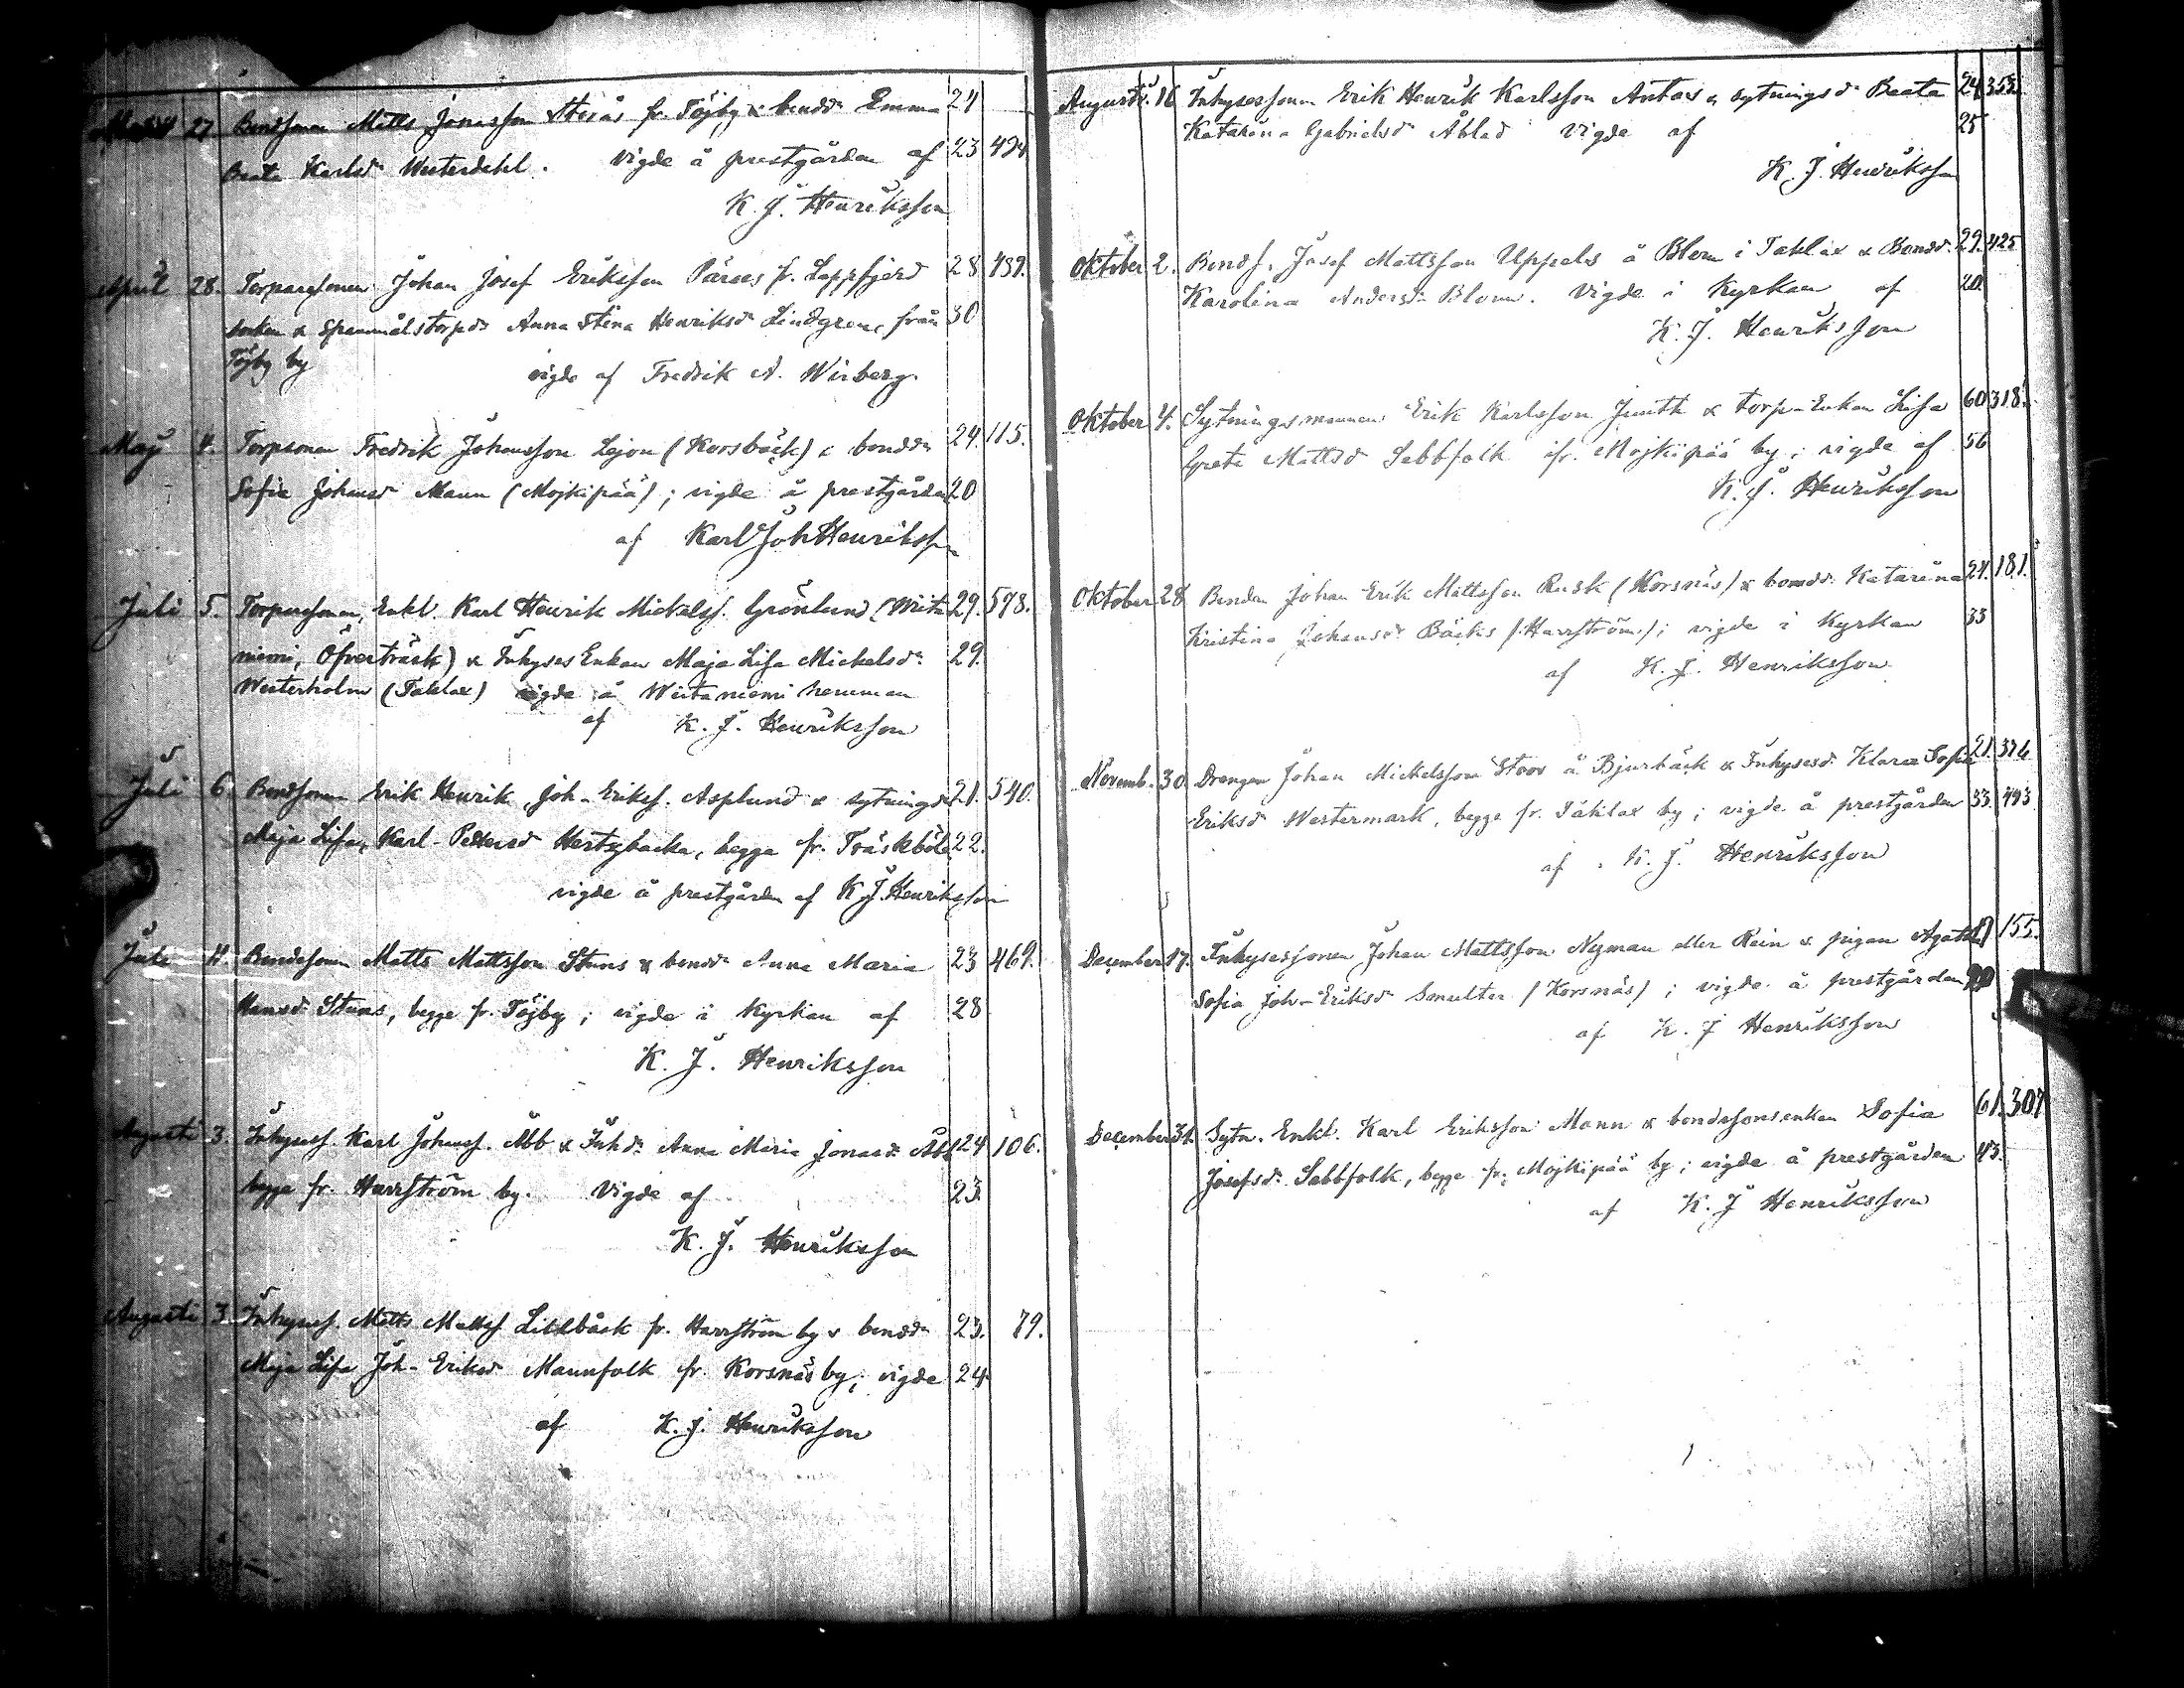 Mars 27 Bondsonen Matts Jonasson Storås fr. Töjby & bondd. Emma 24
Beata Karlsd. Westerdahl. Vigde å prestgården af 23 424
K. J. Henriksson
April 28. Torparesonen Johan Josef Eriksson Päraes fr. Lappfjerd 28 489.
socken & Spanmålstorpd. Anna Stina Henriksd. Lindgren, från 30
Töjby by vigde af Fredrik A. Wirberg.
Maj 4. Torpsonen Fredrik Johansson Lejon (Korsbäck) & bondd. 24. 115.
Sofia Johansd. Mann (Mojkipää); vigde å prestgården 20
af Karl Joh Henriksson
Juli 5. Torparesonen, Enkl. Karl Henrik Mickelss. Grönlund (Wirta 29. 578.
niemi, Öfverträsk) & Inhyses Enkan Maja Lisa Mickelsd. 29.
Westerholm (Taklax) vigde å Wirtaniemi hemman
af K. J. Henriksson
Juli 6. Bondsonen Erik Henrik Joh-Erikss. Asplund & sytningsd. 21. 540.
Maja Lisa Karl-Pettersd. Hertsbacka, begge fr. Träskböle 22.
vigde å prestgården af K. J. Henriksson
Juli 11. Bondesonen Matts Mattsson Stuns & bondd. Anna Maria 23 469.
Hansd. Stuns, begge fr. Töjby; vigde i Kyrkan af 28
K. J. Henriksson
Augusti 3. Inhysess. Karl Johanss. Abb & Inhd. Anna Maria Jonasd. Abb 24 106.
begge fr. Harrström by. Vigde af 23
K. J. Henriksson
Augusti 3. Inhysess. Matts Mattss. Lillbäck fr. Harrström by & bondd. 23. 79.
Maja Lisa Joh-Eriksd. Mannfolk fr. Korsnäs by; vigde 24.
af K. J. Henriksson
Augusti. 16 Inhysessonen Erik Henrik Karlsson Antas & sytningsd. Beata 24 353
Katarina Gabrielsd. Åblad Vigde af 25
K. J. Henriksson
Oktober 2. Bonds. Josef Mattsson Uppels å Blom i Taklax & Bondd. 29. 425
Karolina Andersd. Blom. Vigde i Kyrkan af 20.
K. J. Henriksson
Oktober 4. Sytningsmannen Erik Karlsson Smith & torp-Enkan Lisa 60 318.
Greta Mattsd. Sabbfolk ifr. Mojkipää by; vigde af 56
K. J. Henriksson
Oktober 28 Bonden Johan Erik Mattsson Rusk (Korsnäs) & bondd. Katarina 24. 181.
Kristina Johansd. Bäcks (Harrström); vigde i Kyrkan 33
af K. J. Henriksson
Novemb. 30. Drengen Johan Mickelsson Stoor å Bjurbäck & Inhysesd. Klara Sofia 21. 376
Eriksd. Westermark, begge fr. Taklax by; vigde å prestgården 33. 493
af K. J. Henriksson
December 17. Inhysessonen Johan Mattsson Nyman eller Rein & pigan Agata 155.
Sofia Joh-Eriksd. Smulter (Korsnäs); vigde å prestgården
af K. J Henriksson
December 31. Sytn. Enkl. Karl Eriksson Mann & bondesonsenkan Sofia 61. 307
Josefsd. Sabbfolk, begge fr. Mojkipää by; vigde å prestgården 43.
af K. J Henriksson